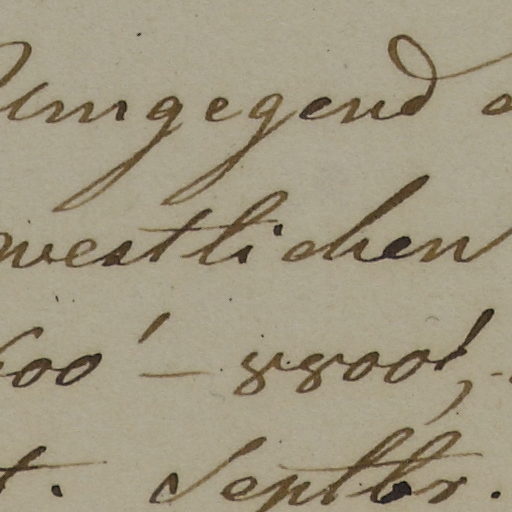 Umgegend d
westlichen
600' – 8800',
t. Septbr.